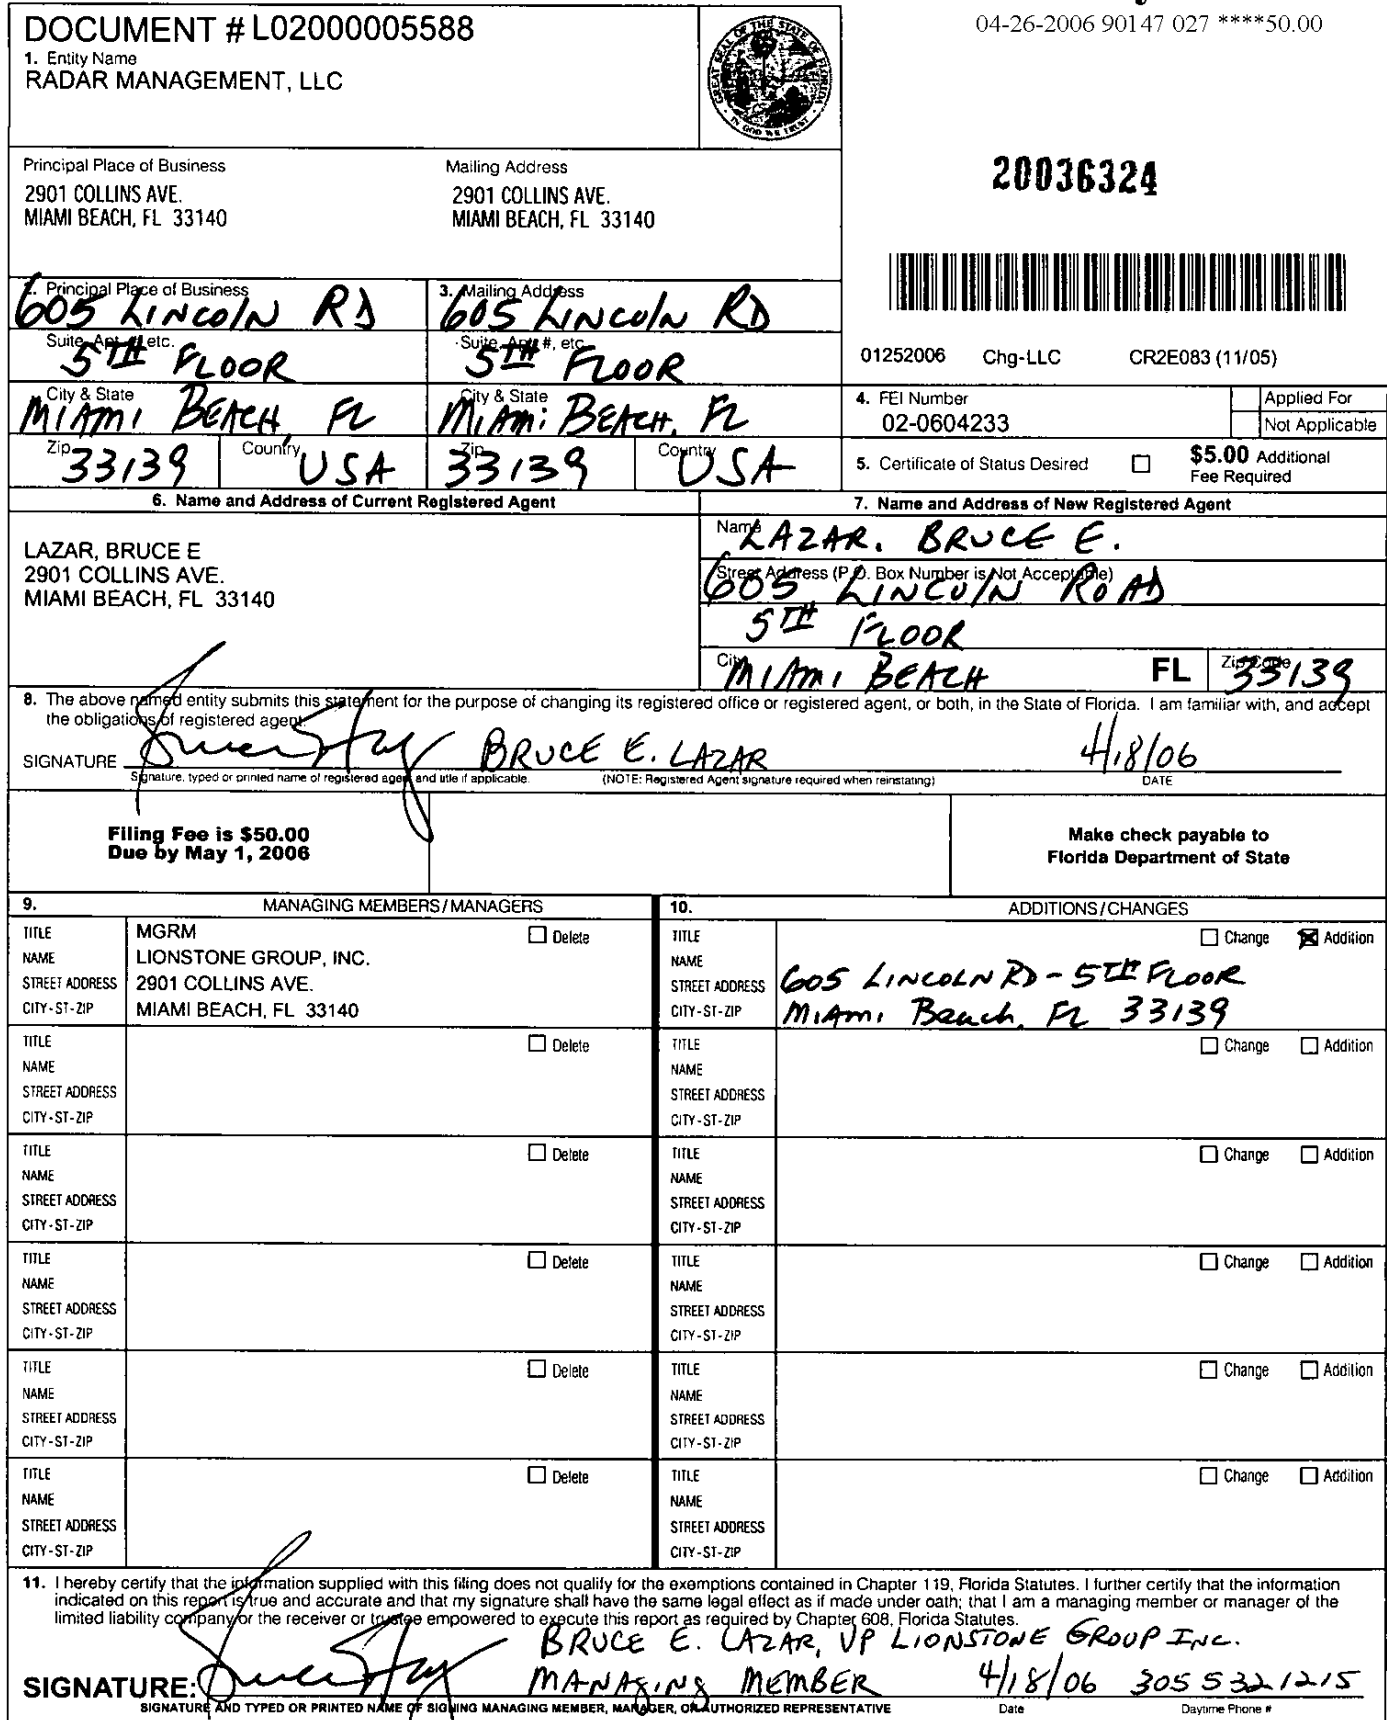 DOCUMENT # L02000005588
1. Entity Name
RADAR MANAGEMENT, LLC
GREAT SEAL OF THE STATE OF FLORIDA
IN GOD WE TRUST
04-26-2006 90147 027 ****50.00
Principal Place of Business
2901 COLLINS AVE.
MIAMI BEACH, FL 33140
Mailing Address
2901 COLLINS AVE.
MIAMI BEACH, FL 33140
20036324
2. Principal Place of Business
605 LINCOLN RD
Suite, Apt. #, etc.
5TH FLOOR
City & State
MIAMI BEACH, FL
Zip
33139
Country
USA
3. Mailing Address
605 LINCOLN RD
Suite, Apt. #, etc.
5TH FLOOR
City & State
MIAMI BEACH, FL
Zip
33139
Country
USA
01252006 Chg-LLC CR2E083 (11/05)
4. FEI Number
02-0604233
Applied For
Not Applicable
5. Certificate of Status Desired
$5.00 Additional
Fee Required
6. Name and Address of Current Registered Agent
LAZAR, BRUCE E
2901 COLLINS AVE.
MIAMI BEACH, FL 33140
7. Name and Address of New Registered Agent
Name
LAZAR, BRUCE E.
Street Address (P.O. Box Number is Not Acceptable)
605 LINCOLN ROAD
5TH FLOOR
City
MIAMI BEACH
FL
Zip Code
33139
8. The above named entity submits this statement for the purpose of changing its registered office or registered agent, or both, in the State of Florida. I am familiar with, and accept
the obligations of registered agent.
SIGNATURE BRUCE E. LAZAR 4/18/06
Signature, typed or printed name of registered agent and title if applicable. (NOTE: Registered Agent signature required when reinstating) DATE
Filing Fee is $50.00
Due by May 1, 2006
Make check payable to
Florida Department of State
9. MANAGING MEMBERS/MANAGERS
TITLE MGRM Delete
NAME LIONSTONE GROUP, INC.
STREET ADDRESS 2901 COLLINS AVE.
CITY-ST-ZIP MIAMI BEACH, FL 33140
TITLE Delete
NAME
STREET ADDRESS
CITY-ST-ZIP
TITLE Delete
NAME
STREET ADDRESS
CITY-ST-ZIP
TITLE Delete
NAME
STREET ADDRESS
CITY-ST-ZIP
TITLE Delete
NAME
STREET ADDRESS
CITY-ST-ZIP
TITLE Delete
NAME
STREET ADDRESS
CITY-ST-ZIP
10. ADDITIONS/CHANGES
TITLE Change Addition
NAME
STREET ADDRESS 605 LINCOLN RD - 5TH FLOOR
CITY-ST-ZIP MIAMI Beach, FL 33139
TITLE Change Addition
NAME
STREET ADDRESS
CITY-ST-ZIP
TITLE Change Addition
NAME
STREET ADDRESS
CITY-ST-ZIP
TITLE Change Addition
NAME
STREET ADDRESS
CITY-ST-ZIP
TITLE Change Addition
NAME
STREET ADDRESS
CITY-ST-ZIP
TITLE Change Addition
NAME
STREET ADDRESS
CITY-ST-ZIP
11. I hereby certify that the information supplied with this filing does not qualify for the exemptions contained in Chapter 119, Florida Statutes. I further certify that the information
indicated on this report is true and accurate and that my signature shall have the same legal effect as if made under oath; that I am a managing member or manager of the
limited liability company or the receiver or trustee empowered to execute this report as required by Chapter 608, Florida Statutes.
BRUCE E. LAZAR, VP LIONSTONE GROUP INC.
SIGNATURE: MANAGING MEMBER 4/18/06 305 532 1215
SIGNATURE AND TYPED OR PRINTED NAME OF SIGNING MANAGING MEMBER, MANAGER, OR AUTHORIZED REPRESENTATIVE Date Daytime Phone #